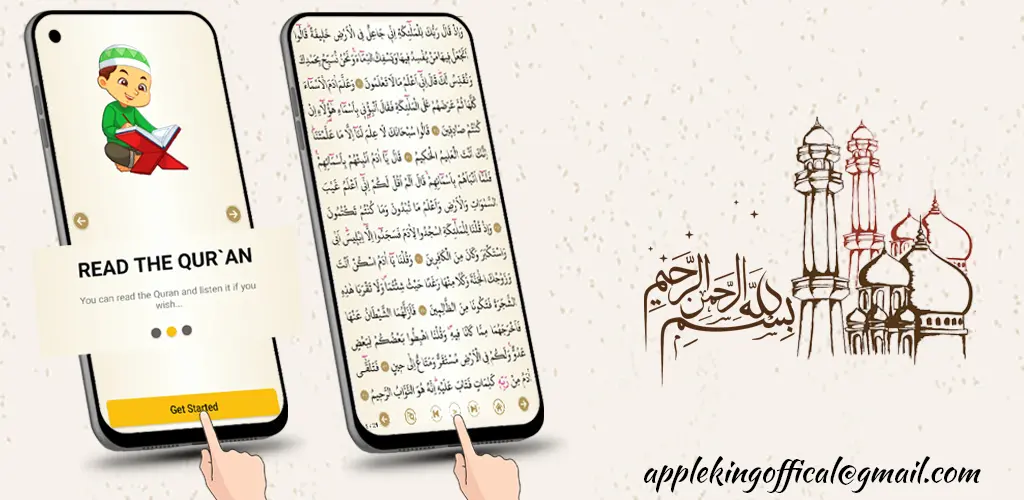 READ THE QUR`AN
You can read the Quran and listen it if you
wish...
Get Started
وَإِذْ قَالَ رَبُّكَ لِلْمَلَٰئِكَةِ إِنِّي جَاعِلٌ فِي الْأَرْضِ خَلِيفَةً قَالُوا
أَتَجْعَلُ فِيهَا مَنْ يُفْسِدُ فِيهَا وَيَسْفِكُ الدِّمَاءَ وَنَحْنُ نُسَبِّحُ بِحَمْدِكَ
وَنُقَدِّسُ لَكَ قَالَ إِنِّي أَعْلَمُ مَا لَا تَعْلَمُونَ وَعَلَّمَ آدَمَ الْأَسْمَاءَ
كُلَّهَا ثُمَّ عَرَضَهُمْ عَلَى الْمَلَٰئِكَةِ فَقَالَ أَنْبِئُونِي بِأَسْمَاءِ هَٰؤُلَاءِ إِنْ
كُنْتُمْ صَادِقِينَ قَالُوا سُبْحَانَكَ لَا عِلْمَ لَنَا إِلَّا مَا عَلَّمْتَنَا
إِنَّكَ أَنْتَ الْعَلِيمُ الْحَكِيمُ قَالَ يَا آدَمُ أَنْبِئْهُمْ بِأَسْمَائِهِمْ
فَلَمَّا أَنْبَأَهُمْ بِأَسْمَائِهِمْ قَالَ أَلَمْ أَقُلْ لَكُمْ إِنِّي أَعْلَمُ غَيْبَ
السَّمَٰوَاتِ وَالْأَرْضِ وَأَعْلَمُ مَا تُبْدُونَ وَمَا كُنْتُمْ تَكْتُمُونَ
وَإِذْ قُلْنَا لِلْمَلَٰئِكَةِ اسْجُدُوا لِآدَمَ فَسَجَدُوا إِلَّا إِبْلِيسَ أَبَىٰ
وَاسْتَكْبَرَ وَكَانَ مِنَ الْكَافِرِينَ وَقُلْنَا يَا آدَمُ اسْكُنْ أَنْتَ
وَزَوْجُكَ الْجَنَّةَ وَكُلَا مِنْهَا رَغَدًا حَيْثُ شِئْتُمَا وَلَا تَقْرَبَا هَٰذِهِ
الشَّجَرَةَ فَتَكُونَا مِنَ الظَّالِمِينَ فَأَزَلَّهُمَا الشَّيْطَانُ عَنْهَا
فَأَخْرَجَهُمَا مِمَّا كَانَا فِيهِ وَقُلْنَا اهْبِطُوا بَعْضُكُمْ لِبَعْضٍ
عَدُوٌّ وَلَكُمْ فِي الْأَرْضِ مُسْتَقَرٌّ وَمَتَاعٌ إِلَىٰ حِينٍ فَتَلَقَّىٰ
آدَمُ مِنْ رَبِّهِ كَلِمَاتٍ فَتَابَ عَلَيْهِ إِنَّهُ هُوَ التَّوَّابُ الرَّحِيمُ
بسم الله الرحمن الرحيم
applekingoffical@gmail.com